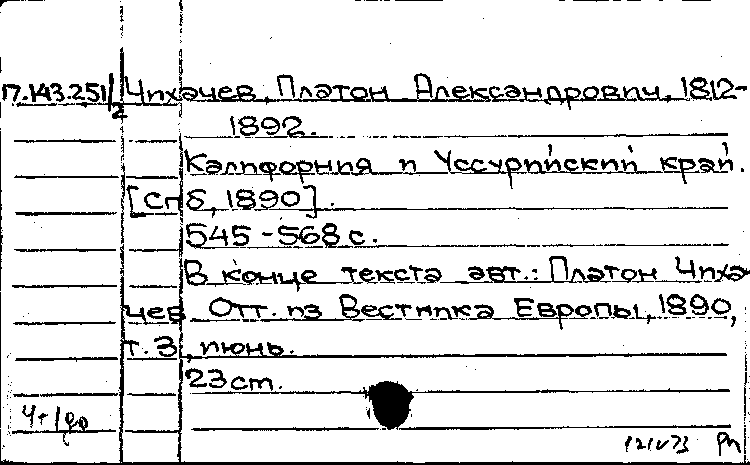 17.143.251/2 Чихачев, Платон Александрович, 1812-
1892.
Калифорния и Уссурийский край.
[Спб, 1890].
545-568 с.
В конце текста авт.: Платон Чиха
чев. Отт. из Вестника Европы, 1890,
т. 3, июнь.
23 cm.